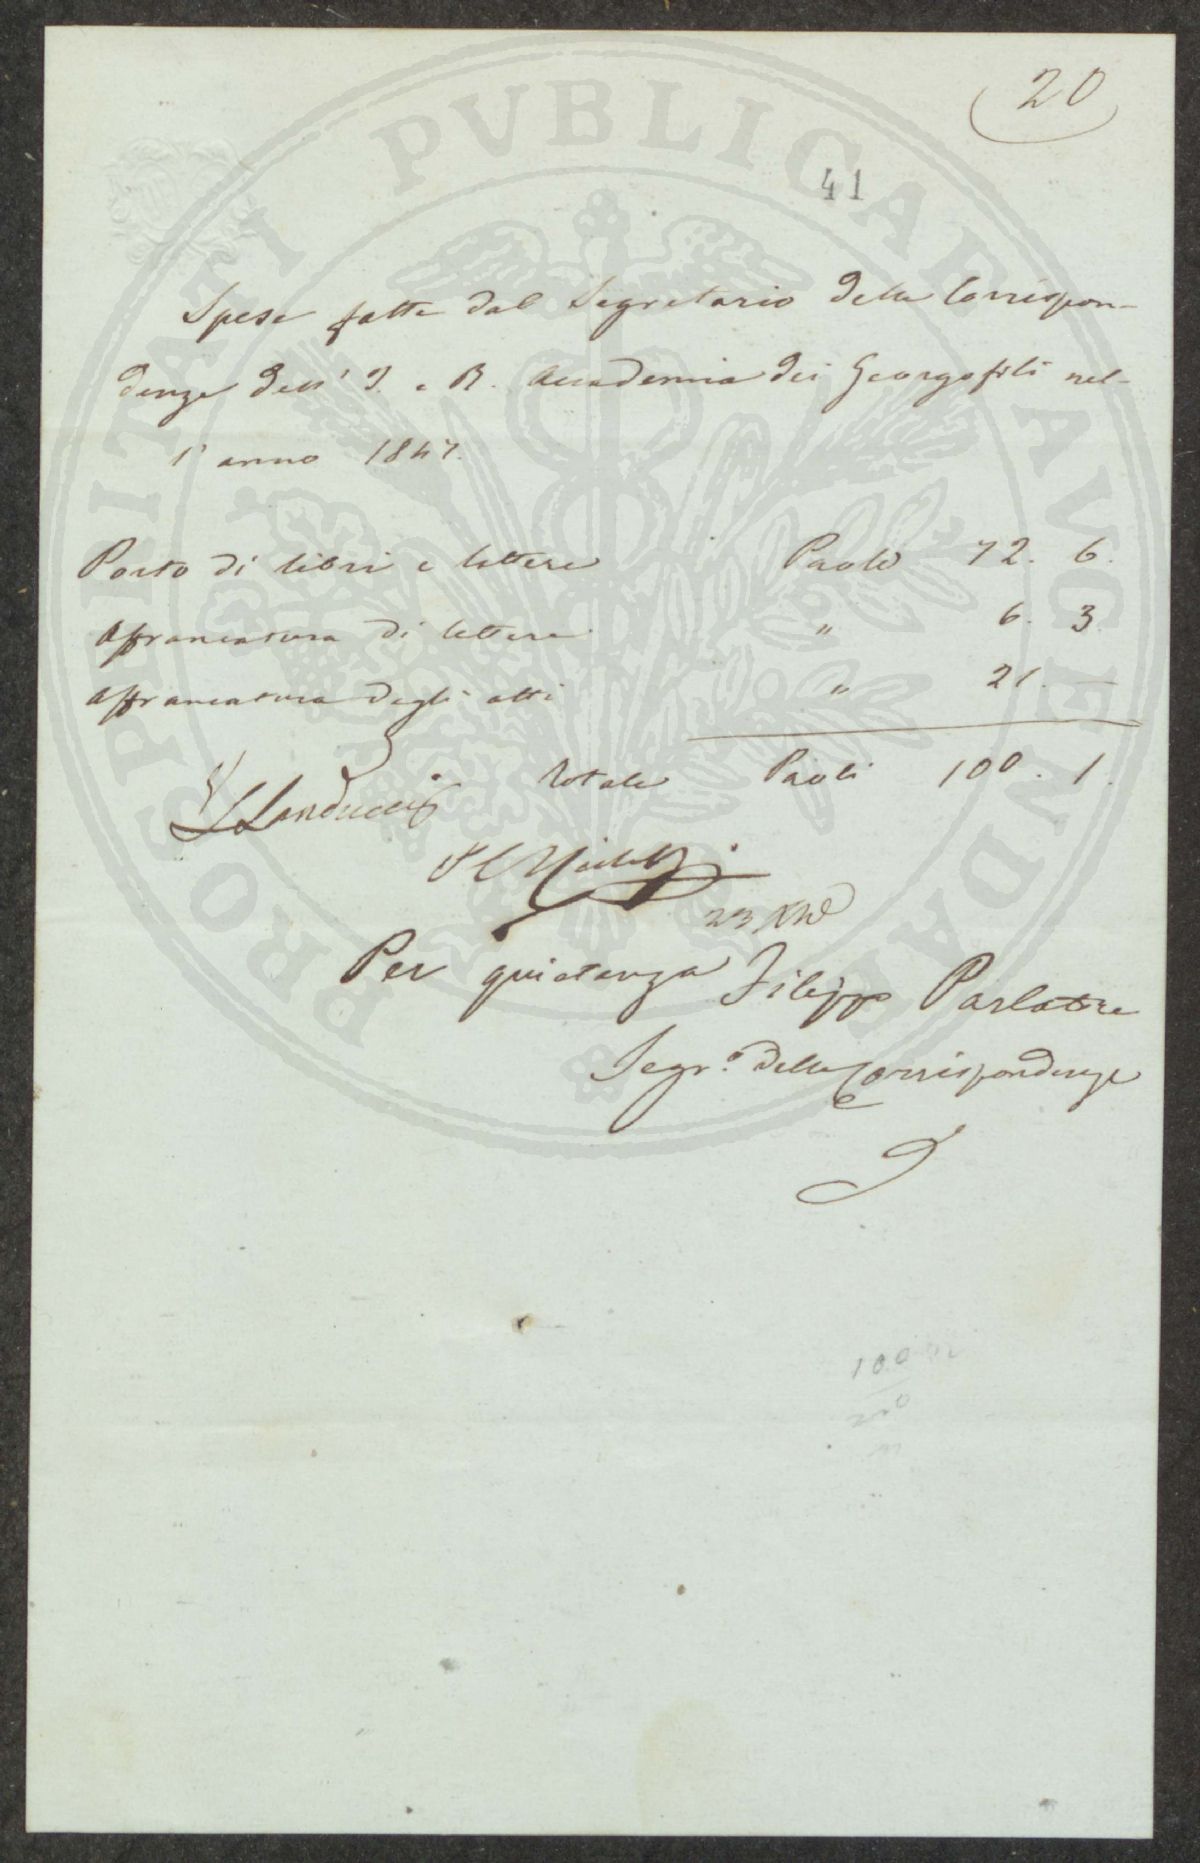 20
41
PROSPERITATI PVBLICAE AVGENDAE
Spese fatte dal Segretario delle Corrispon-
denze dell' I. e R. Accademia dei Georgofili nel-
l' anno 1847.
Porto di libri e lettere Paoli 72. 6.
Affrancatura di lettere " 6. 3
Affrancatura degli atti " 21. —
Totale Paoli 100. 1.
V L Landucci
23 Xbre
Per quietanza Filippo Parlatore
Segr.o delle Corrispondenze
100